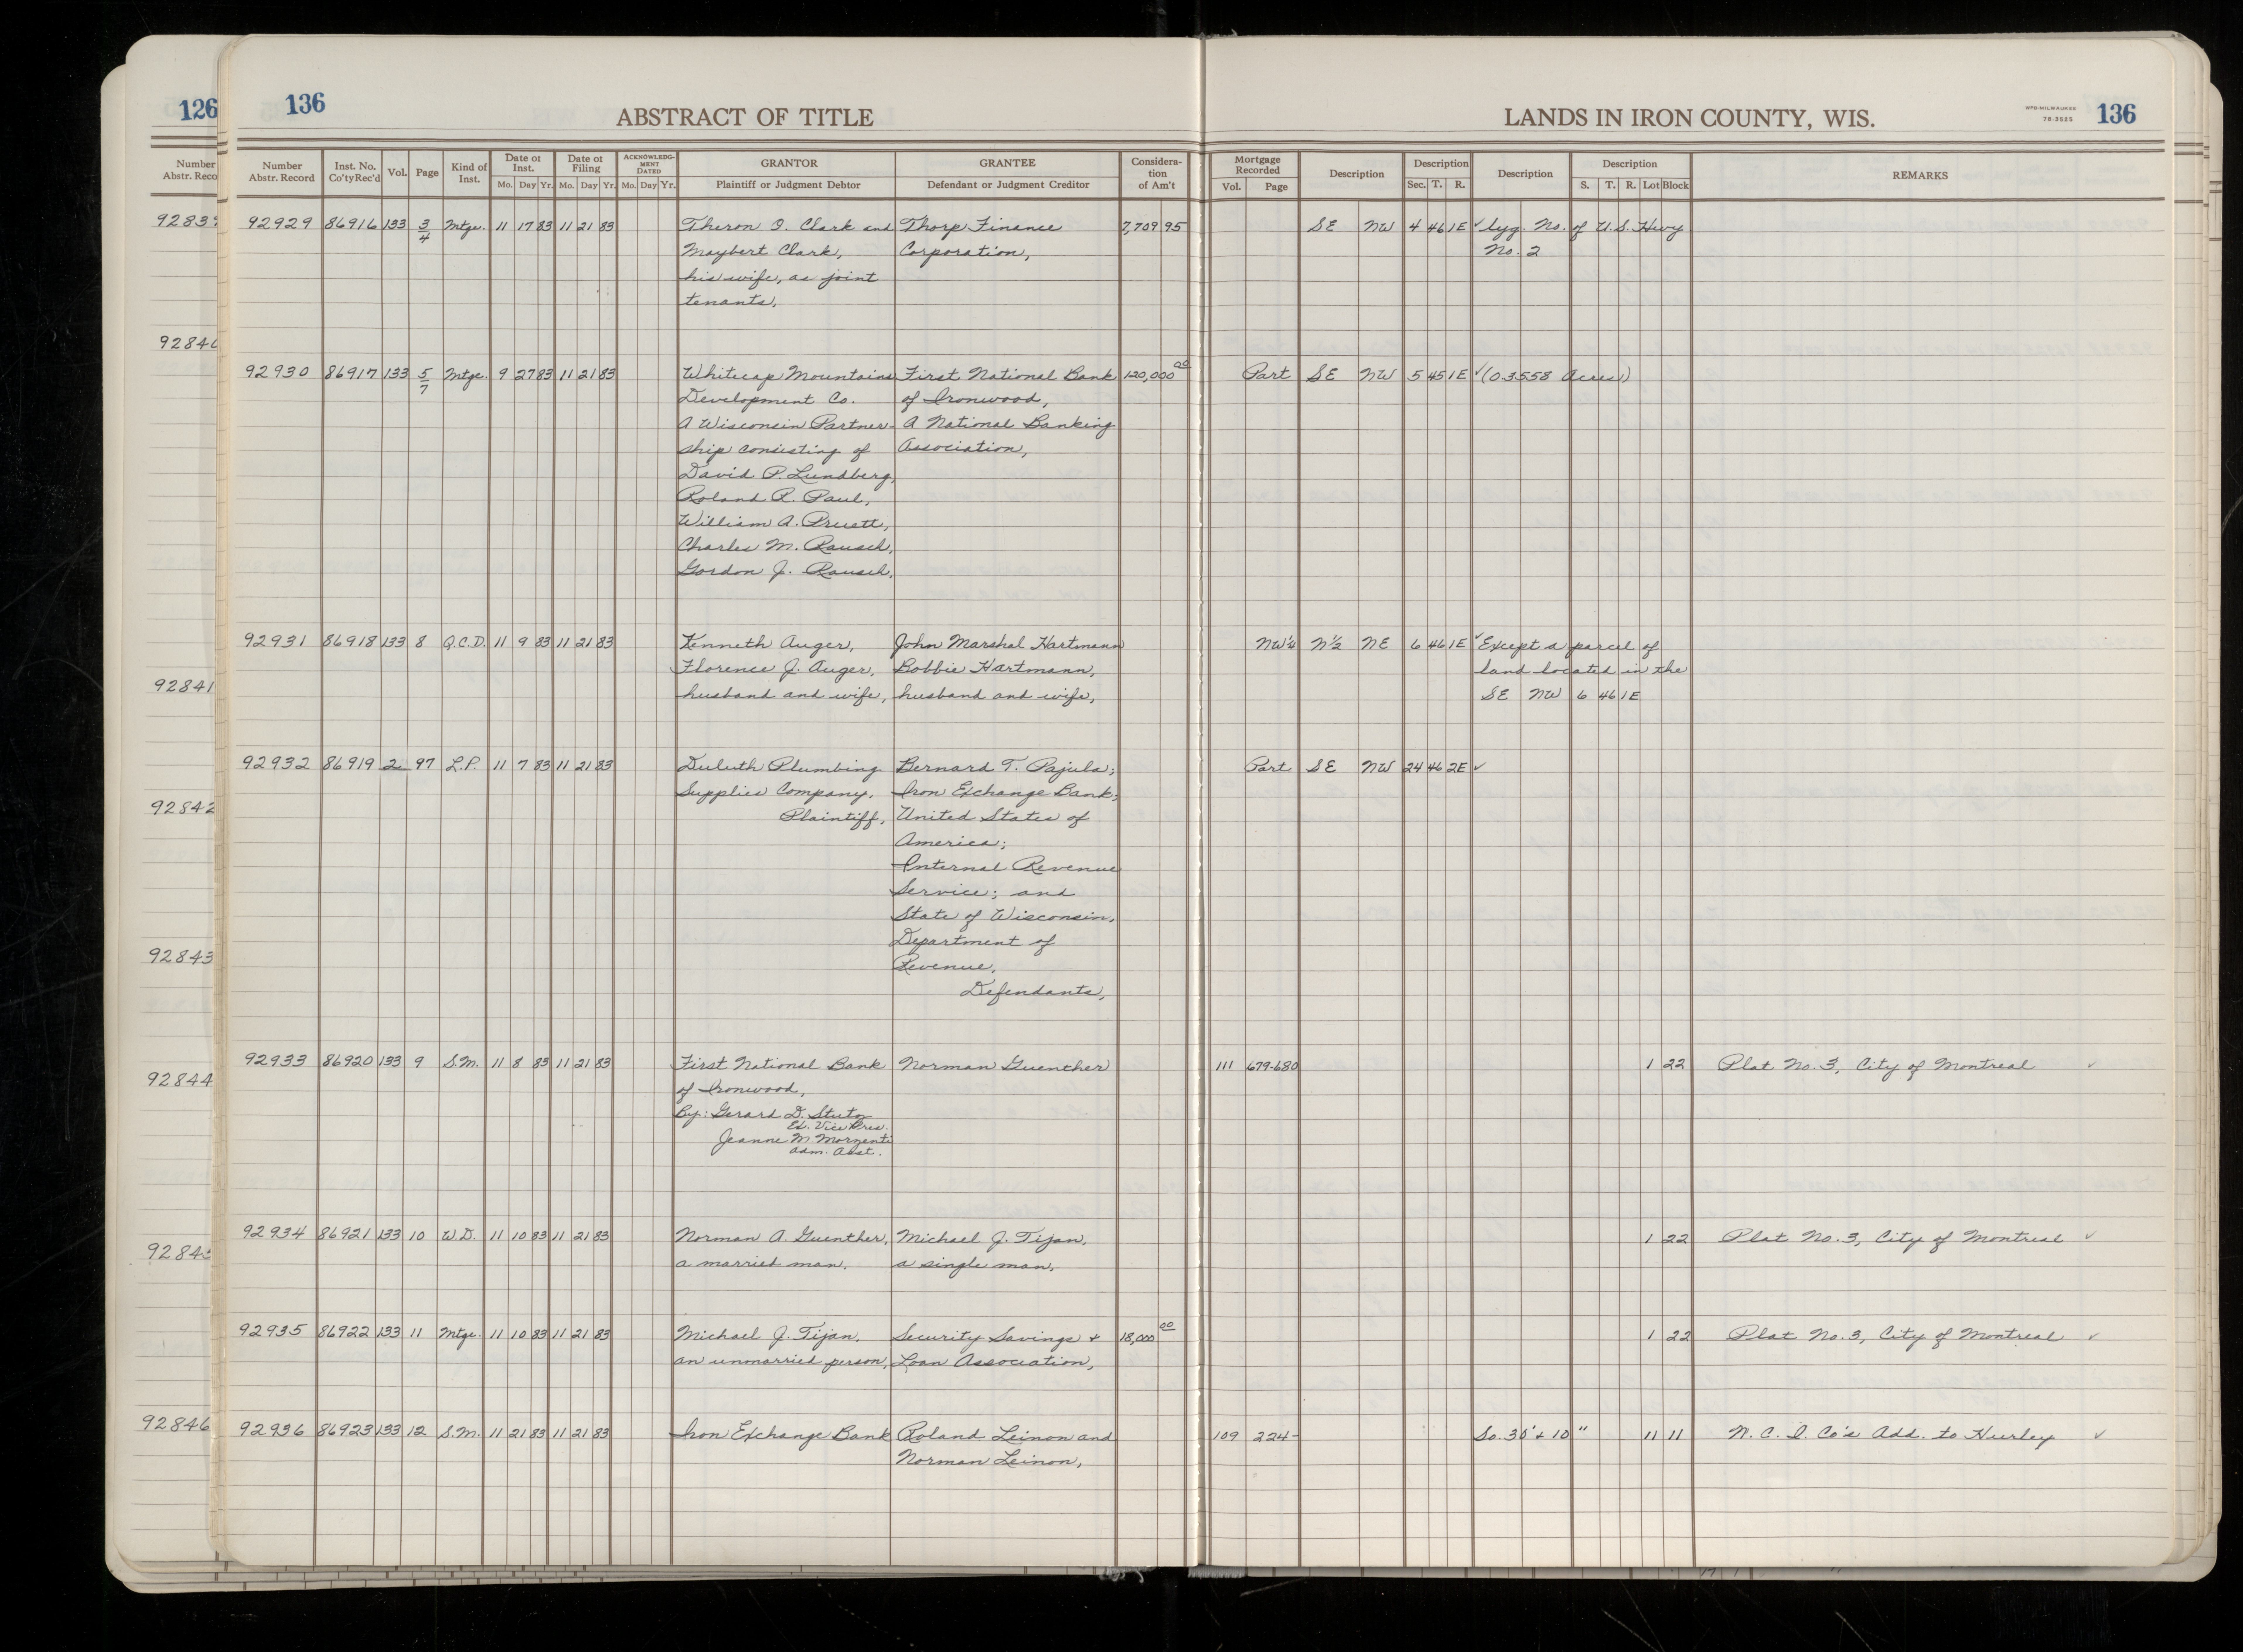 126
Number
Abstr. Reco
9283
9284
92841
92842
92843
92844
9284
92846
136
ABSTRACT OF TITLE
LANDS IN IRON COUNTY, WIS.
WPB-MILWAUKEE
78-3525
136
Number Abstr. Record | Inst. No. Co'ty Rec'd | Vol. | Page | Kind of Inst. | Date of Inst. Mo. Day Yr. | Date of Filing Mo. Day Yr. | ACKNOWLEDGMENT DATED Mo. Day Yr. | GRANTOR Plaintiff or Judgment Debtor | GRANTEE Defendant or Judgment Creditor | Consideration of Am't | Mortgage Recorded Vol. Page | Description | Description Sec. T. R. | Description | Description S. T. R. Lot Block | REMARKS
92929 86916 133 3/4 Mtge. 11 17 83 11 21 83 Theron O. Clark and Thorp Finance 7,709 95 SE NW 4 46 1E ✓ lyg. No. of U.S. Hwy
Maybert Clark, Corporation, No. 2
his wife, as joint
tenants,
92930 86917 133 5/7 Mtge. 9 27 83 11 21 83 Whitecap Mountains First National Bank 120,000 00 Part SE NW 5 45 1E ✓ (0.3558 Acres)
Development Co. of Ironwood,
A Wisconsin Partner- A National Banking
ship consisting of Association,
David P. Lundberg,
Roland R. Paul,
William A. Pruett,
Charles M. Rausch,
Gordon J. Rausch,
92931 86918 133 8 Q.C.D. 11 9 83 11 21 83 Kenneth Auger, John Marshal Hartmann NW¼ N½ NE 6 46 1E ✓ Except a parcel of
Florence J. Auger, Bobbie Hartmann, land located in the
husband and wife, husband and wife, SE NW 6 46 1E
92932 86919 2 97 L.P. 11 7 83 11 21 83 Duluth Plumbing Bernard T. Pajula; Part SE NW 24 46 2E ✓
Supplies Company, Iron Exchange Bank;
Plaintiff, United States of
America;
Internal Revenue
Service; and
State of Wisconsin,
Department of
Revenue,
Defendants,
92933 86920 133 9 S.M. 11 8 83 11 21 83 First National Bank Norman Guenther 111 679-680 1 22 Plat No. 3, City of Montreal ✓
of Ironwood,
By: Gerard D. Stutz
Ex. Vice Pres.
Jeanne M. Morzenti
Adm. Asst.
92934 86921 133 10 W.D. 11 10 83 11 21 83 Norman A. Guenther, Michael J. Tijan, 1 22 Plat No. 3, City of Montreal ✓
a married man, a single man,
92935 86922 133 11 Mtge. 11 10 83 11 21 83 Michael J. Tijan, Security Savings + 18,000 00 1 22 Plat No. 3, City of Montreal ✓
an unmarried person, Loan Association,
92936 86923 133 12 S.M. 11 21 83 11 21 83 Iron Exchange Bank Roland Leinon and 109 224- So. 35' + 10" 11 11 N. C. I. Co's Add. to Hurley ✓
Norman Leinon,